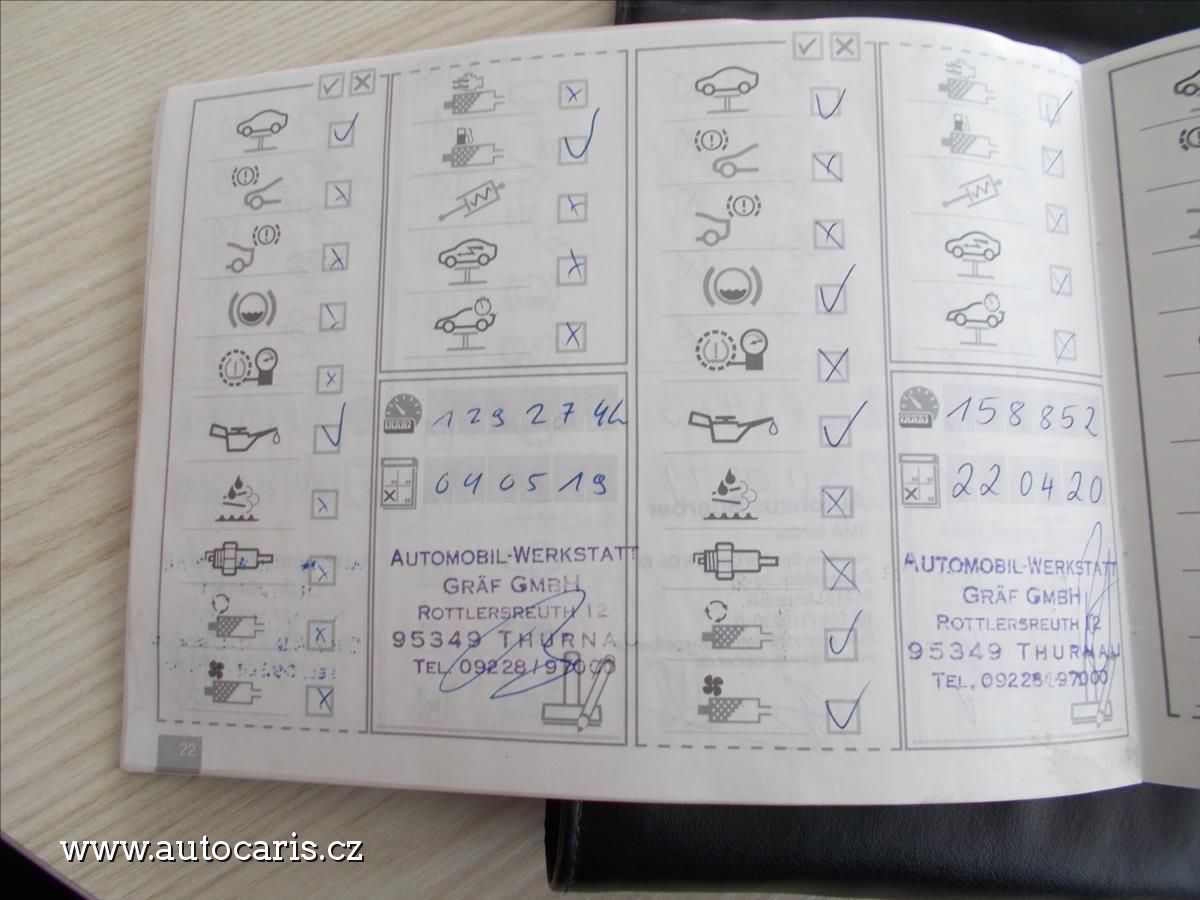 129274
040519
AUTOMOBIL-WERKSTATT
GRÄF GMBH
ROTTLERSREUTH 12
95349 THURNA
TEL. 09228/97000
22
158852
220420
AUTOMOBIL-WERKSTATT
GRÄF GMBH
ROTTLERSREUTH 12
95349 THURNAU
TEL. 09228/97000
www.autocaris.cz